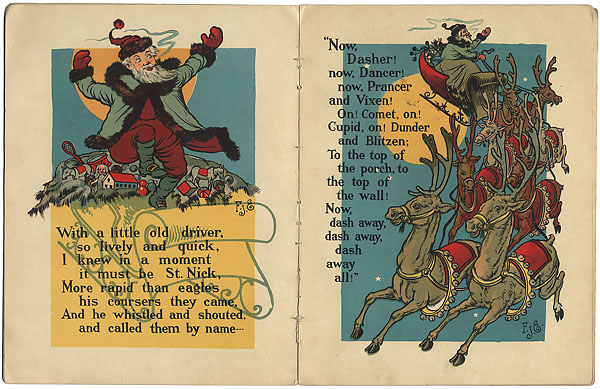 With a little old driver,
so lively and quick,
I knew in a moment
it must be St. Nick,
More rapid than eagles
his coursers they came,
And he whistled and shouted,
and called them by name—
F.J.E.
"Now,
Dasher!
now, Dancer!
now, Prancer
and Vixen!
On! Comet, on!
Cupid, on! Dunder
and Blitzen;
To the top of
the porch, to
the top of
the wall!
Now,
dash away,
dash away,
dash
away
all!"
F.J.E.